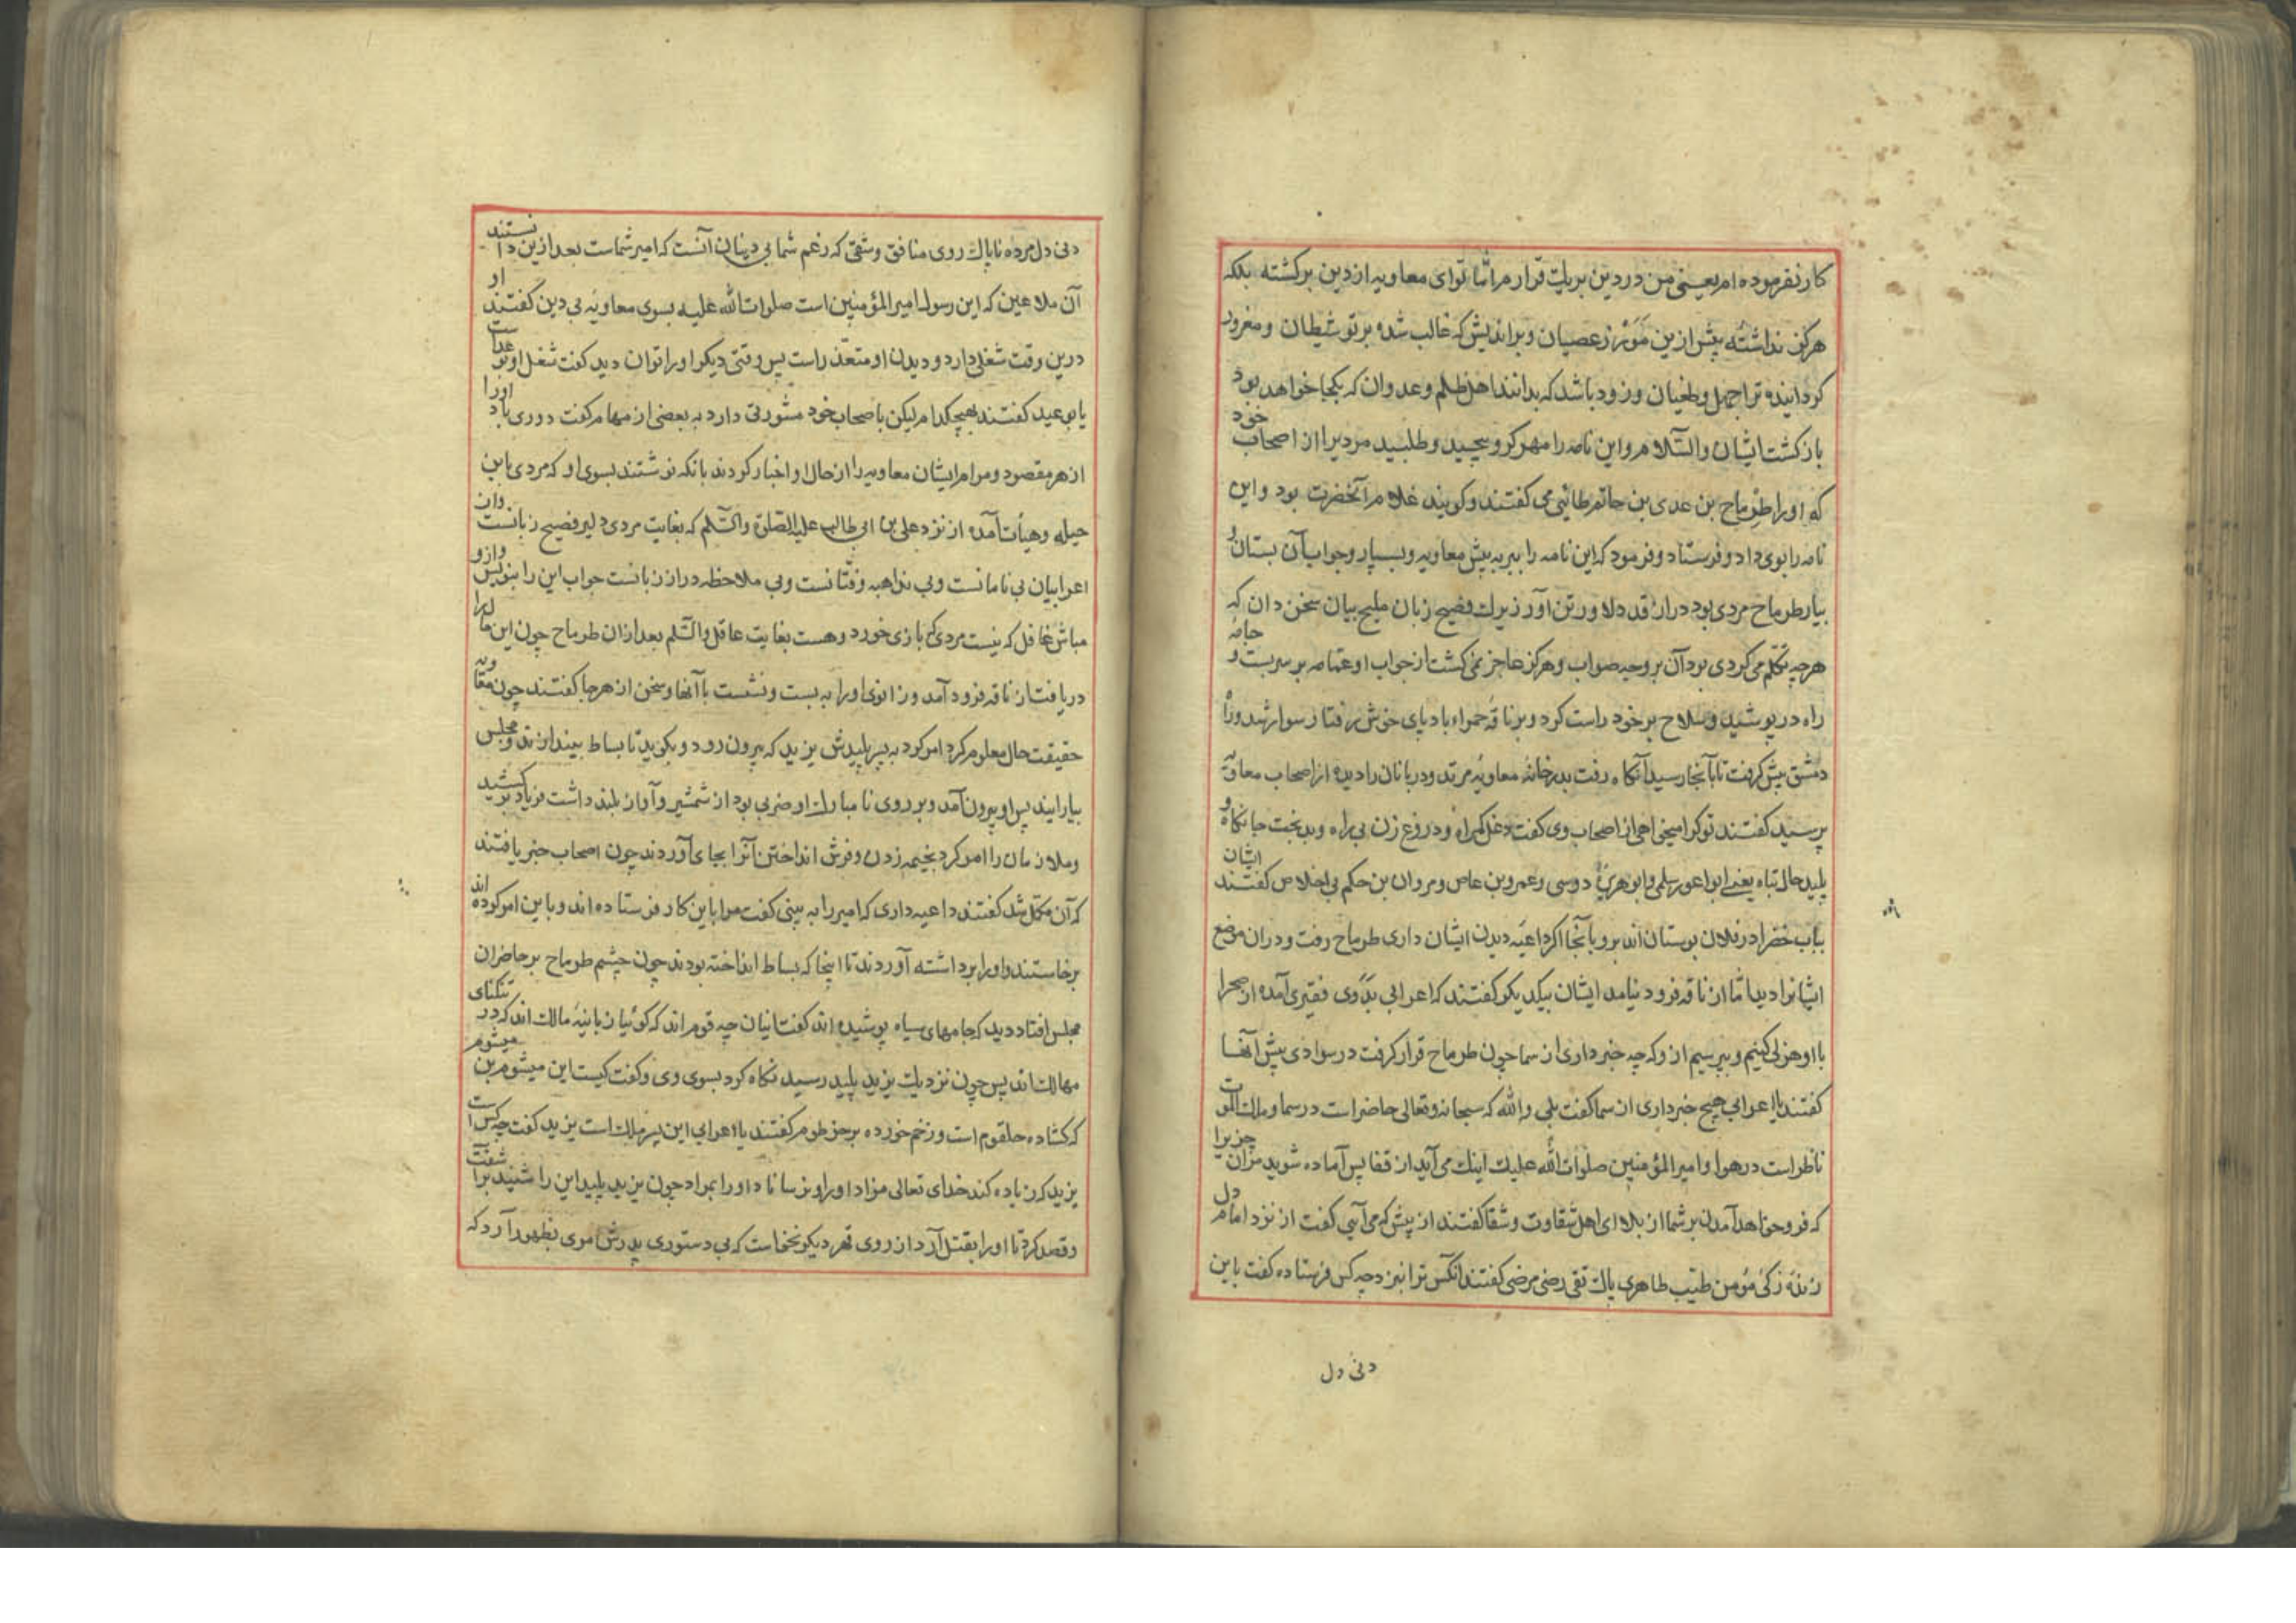 کار نفرموده ام یعنی من در دین بریک قرارم اما تو ای معاویه از دین برکشته بلکه
هرکز نداشته پیش ازین زعصیان وبراندیش که غالب شده برتو شیطان ومغرور
کردانیده ترا جهل وطغیان وزود باشد که بدانند اهل ظلم وعدوان که بکجا خواهد بود
بازکشت ایشان والسلام واین نامه را مهر کرد وپیچید وطلبید مردیرا از اصحاب خود
که او را طِرِماح بن عدی بن حاتم طائیی می کفتند وکویند غلام آنحضرت بود واین
نامه را بوی داد وفرستاد وفرمود که این نامه را ببر به پیش معاویه وبسپار وجواب آن بستان و
بیار طرماح مردی بود دراز قد دلاور تن آور زیرک فصیح زبان ملیح بیان سخن دان که
هرچه تکلم می کردی بود آن بر وجه صواب وهرکز عاجز نمی کشت از جواب او عمامه بر سر بست و جامهٔ
راه در پوشید وسلاح بر خود راست کرد وبر ناقهٔ حمراء بادپای خوش رفتار سوار شد وراه
دمشق پیش کرفت تا بآنجا رسید آنکاه رفت بدر خانهٔ معاویهٔ مرتد ودربانان را دیده از اصحاب معاویه
پرسید کفتند تو کرا میخواهی از اصحاب وی کفت دغل کمراه ودروغ زن بی راه وبدبخت جانکاه و
پلید حال تباه یعنے ابواعور سلمی وابوهریرهٔ دوسی وعمرو بن عاص ومروان بن حکم بی اخلاص کفتند ایشان
بباب خضرا در فلان بوستان اند برو بآنجا اکر داعیهٔ دیدن ایشان داری طرماح رفت ودران موضع
ایشانرا دید اما از ناقه فرود نیامد ایشان بیکدیکر کفتند که اعرابی بدوی فقیری آمده از صحرا
با او هزلی کنیم وبپرسیم ازو که چه خبر داری از سما چون طرماح قرار کرفت در سوادی پیش آنها
کفتند یا اعرابی هیچ خبر داری از سما کفت بلی والله که سبحانه وتعالی حاضر است در سما وملک الموت
ناظر است در هوا وامیر المؤمنین صلوات الله علیه اینک می آید از قفا پس آماده شوید مر آن چیز را
که فرو خواهد آمدن بر شما از بلا ای اهل شقاوت وشقا کفتند از پیش که می آیی کفت از نزد امام دل
زندهٔ زکی مؤمن طیّب طاهری پاک تقی رضی مرضی کفتند آنکس ترا بنزد چه کس فرستاده کفت باین
دنی دل
دنی دل مرده ناپاک روی منافق وشقی که زعم شما بی دینان آنست که امیر شماست بعد ازین دانستند
آن ملاعین که این رسول امیر المؤمنین است صلوات الله علیه بسوی معاویهٔ بی دین کفتند او
درین وقت شغلی دارد ودیدن او متعذّر است پس وقتی دیکر او را توان دید کفت شغل او بوعداست
یا بوعید کفتند بهیچکدام لیکن با صحاب خود مشورتی دارد به بعضی از مهام کفت دوری باد اورا
از هر مقصود ومرام ایشان معاویه را از حال او اخبار کردند بانکه نوشتند بسوی او که مردی باین
حیله وهیأت آمده از نزد علی بن ابی طالب علیه الصلوة والسّلم که بغایت مردی دلیر فصیح زبانست وان
اعرابیان بی نامانست وبی ملاحظه دراز زبانست جواب این را بنویس وازو
مباش غافل که نیست مردی که بازی خورد وهست بغایت عاقل والسّلم بعد ازان طرماح چون این ماجرا
دریافت از ناقه فرود آمد وزانوی او را به بست ونشست با آنها وسخن از هرجا کفتند چون معاویه
حقیقت حال معلوم کرد امر کرد به پسر پلیدش یزید که بیرون رود وبکوید تا بساط بیندازند ومجلس
بیارایند پس او بیرون آمد وبر روی نامبارک او ضربی بود از شمشیر وآواز بلند داشت فریاد برکشید
وملازمان را امر کرد بخیمه زدن وفرش انداختن آنرا بجای آوردند چون اصحاب خبر یافتند
که آن مکمّل شد کفتند داعیه داری که امیر را به بینی کفت مرا باین کار فرستاده اند وباین امر کرده اند
برخاستند واورا برداشته آوردند تا اینجا که بساط انداخته بودند چون چشم طرماح بر حاضران
مجلس افتاد دید که جامهای سیاه پوشیده اند کفت اینان چه قوم اند که کوئیا زبانیهٔ مالک اند که در تنکنای
مهالک اند پس چون نزدیک یزید پلید رسید نکاه کرد بسوی وی وکفت کیست این میشوم بن میشوم
که کشاده حلقوم است وزخم خورده بر خرطوم کفتند یا اعرابی این پسر ملک است یزید کفت چه کس است
یزید که زیاده کند خدای تعالی مزاد او را ونرساناد او را بمراد چون یزید پلید این را شنید برآشفت
وقصد کرد تا او را بقتل آرد از روی قهر دیکر نخواست که بی دستوری پدرش امری بظهور آرد که